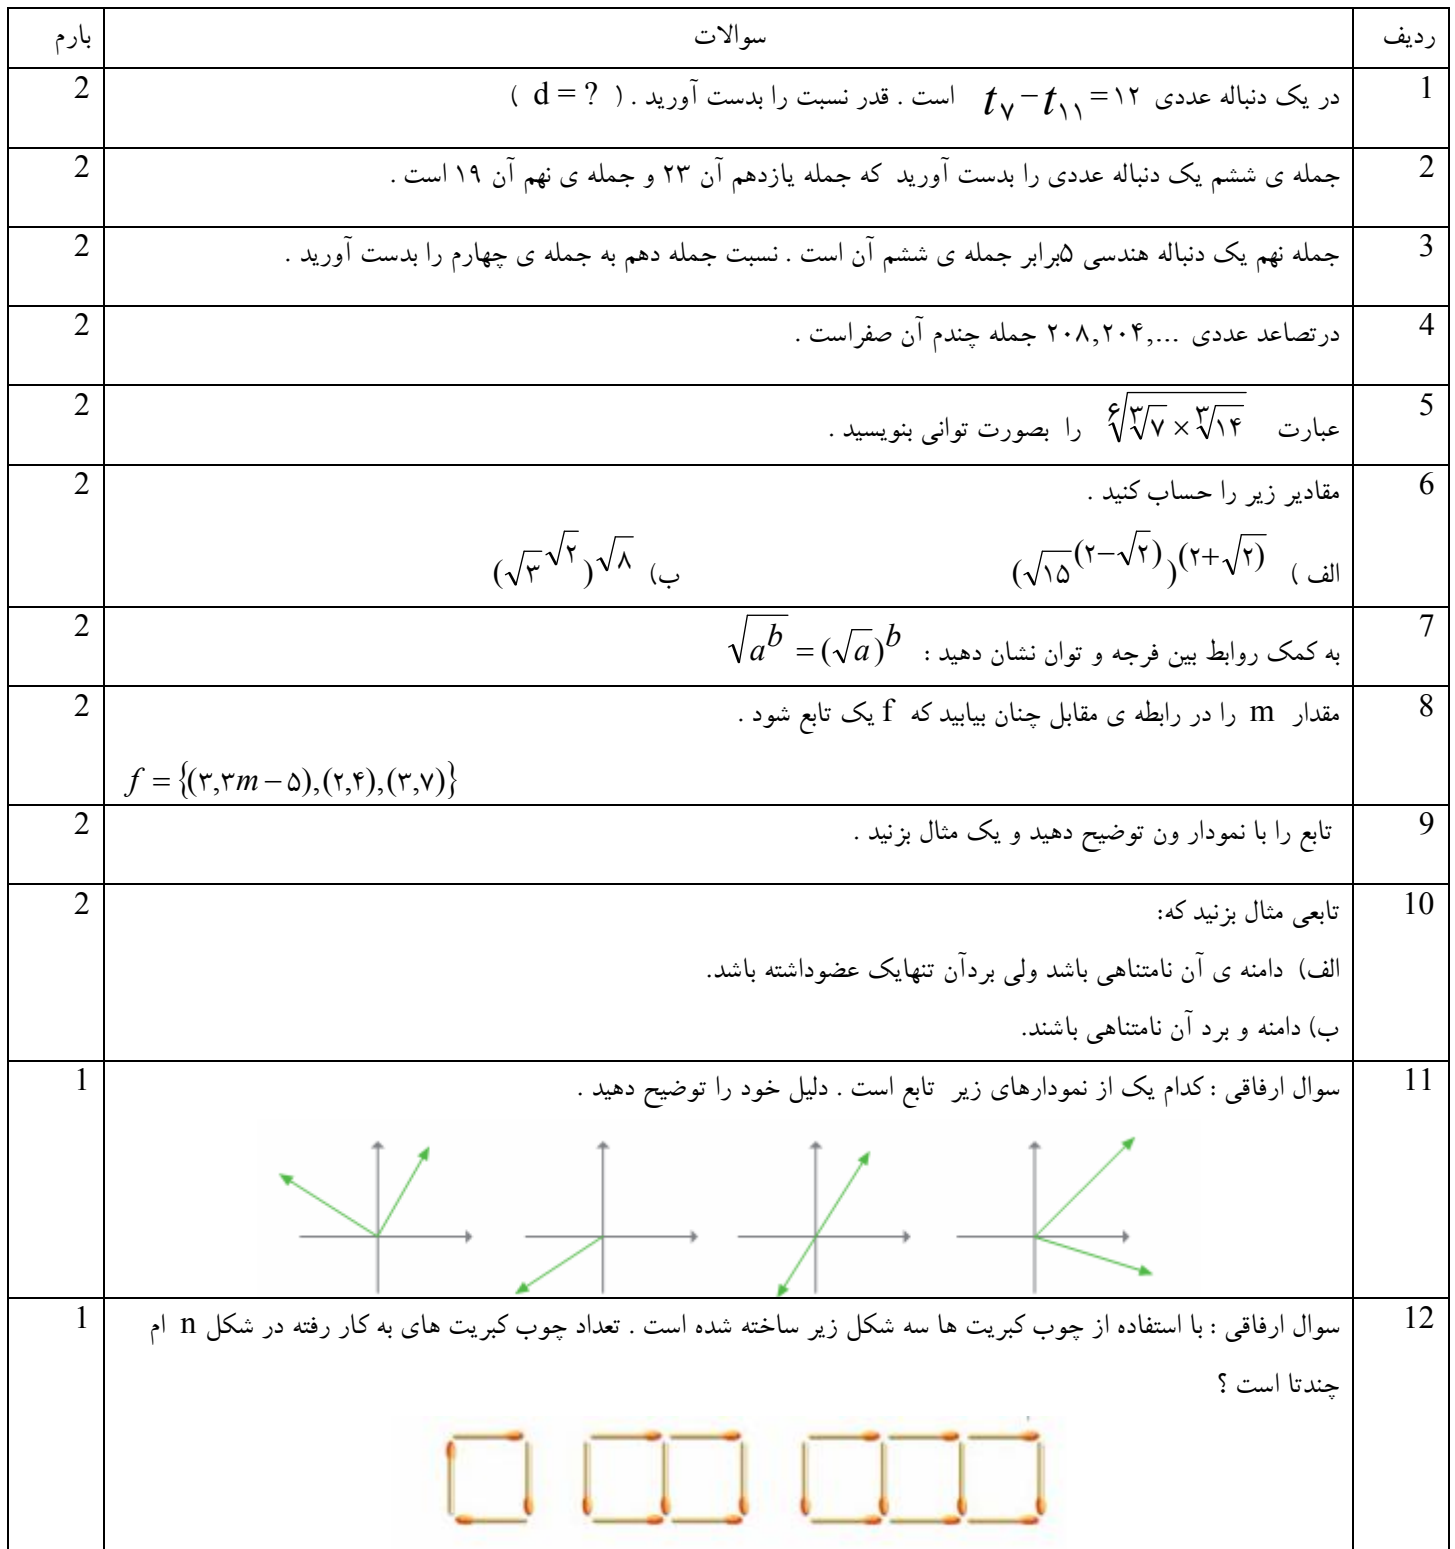 ردیف سوالات بارم
1 در یک دنباله عددی t۷ − t۱۱ = ۱۲ است . قدر نسبت را بدست آورید . ( d = ? ) 2
2 جمله ی ششم یک دنباله عددی را بدست آورید که جمله یازدهم آن ۲۳ و جمله ی نهم آن ۱۹ است . 2
3 جمله نهم یک دنباله هندسی ۵برابر جمله ی ششم آن است . نسبت جمله دهم به جمله ی چهارم را بدست آورید . 2
4 درتصاعد عددی ۲۰۸,۲۰۴,... جمله چندم آن صفراست . 2
5 عبارت ⁶√(³√۷ × ³√۱۴) را بصورت توانی بنویسید . 2
6 مقادیر زیر را حساب کنید . 2
الف ) (√۱۵^(۲−√۲))^(۲+√۲) ب) (√۳^√۲)^√۸
7 به کمک روابط بین فرجه و توان نشان دهید : √(a^b) = (√a)^b 2
8 مقدار m را در رابطه ی مقابل چنان بیابید که f یک تابع شود . 2
f = {(۳,۳m − ۵),(۲,۴),(۳,۷)}
9 تابع را با نمودار ون توضیح دهید و یک مثال بزنید . 2
10 تابعی مثال بزنید که: 2
الف) دامنه ی آن نامتناهی باشد ولی بردآن تنهایک عضوداشته باشد.
ب) دامنه و برد آن نامتناهی باشند.
11 سوال ارفاقی : کدام یک از نمودارهای زیر تابع است . دلیل خود را توضیح دهید . 1
12 سوال ارفاقی : با استفاده از چوب کبریت ها سه شکل زیر ساخته شده است . تعداد چوب کبریت های به کار رفته در شکل n ام 1
چندتا است ؟